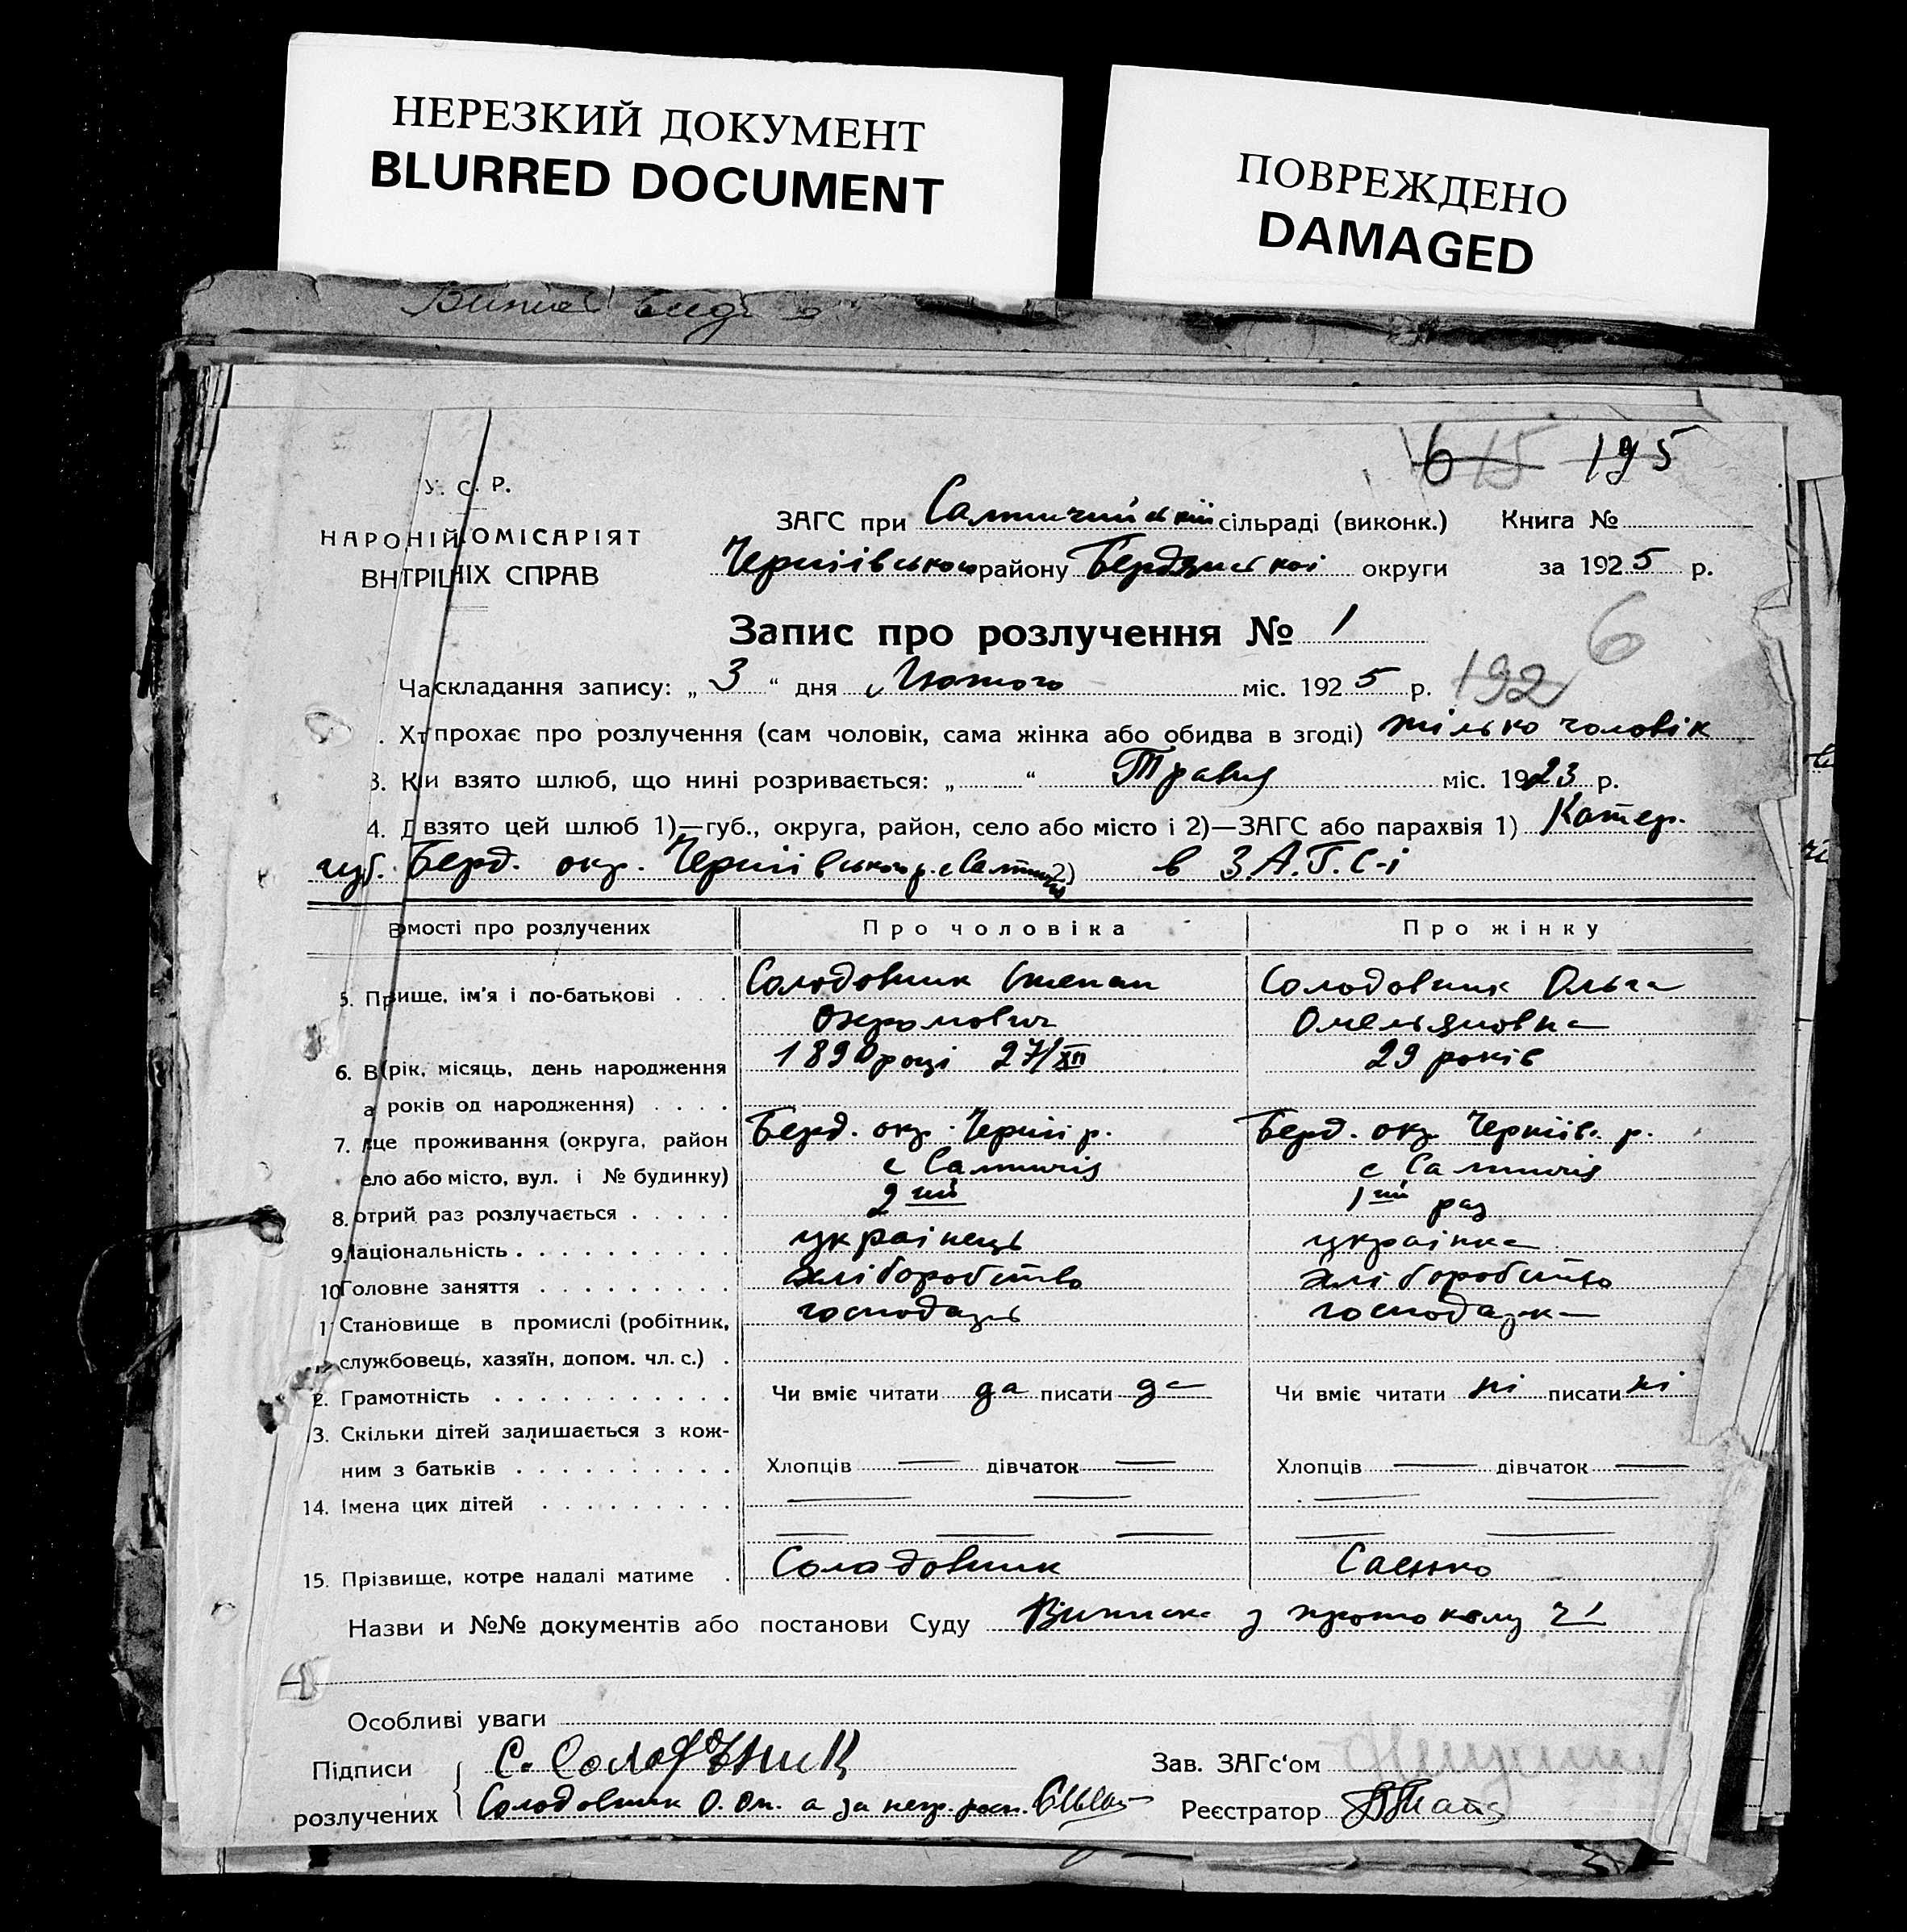 НЕРЕЗКИЙ ДОКУМЕНТ
BLURRED DOCUMENT
ПОВРЕЖДЕНО
DAMAGED
6 15 195
У. С. Р.
НАРОНІЙ ОМІСАРІЯТ
ВНТРІЦНІХ СПРАВ
ЗАГС при Салтичийській сільраді (виконк.) Книга №
Чернігівського району Бердянської округи за 1925 р.
Запис про розлучення № 1
6
Ча складання запису: „ 3 “ дня Лютого міс. 1925 р. 192
. Хт прохає про розлучення (сам чоловік, сама жінка або обидва в згоді) тілько чоловік
3. К и взято шлюб, що нині розривається: „ “ Травня міс. 1923 р.
4. Д взято цей шлюб 1)—губ., округа, район, село або місто і 2)—ЗАГС або парахвія 1) Катер.
губ. Берд. окр. Чернігівського р. с Салтичія 2) в З.А.Г.С-і
В омості про розлучених Про чоловіка Про жінку
5. Пр ище, ім'я і по-батькові . . . Солодовник Степан Солодовник Ольга
Охромович Омельяновна
6. В (рік, місяць, день народження 1890 році 27/XII 29 років
а років од народження) . . . .
7. це проживання (округа, район Берд. окр. Черниг р. Берд. окр Чернігів. р.
ело або місто, вул. і № будинку) с Салтичія с Салтичія
8. отрий раз розлучається . . . . . 2ий 1ий раз
9. Національність . . . . . . . . . . українець українка
10 Головне заняття . . . . . . . . . хліборобство хліборобство
1 Становище в промислі (робітник, господарь господарка
службовець, хазяїн, допом. чл. с.) .
2. Грамотність . . . . . . . . . . . Чи вміє читати да писати да Чи вміє читати ні писати ні
3. Скільки дітей залишається з кож-
ним з батьків . . . . . . . . . . Хлопців — дівчаток — Хлопців — дівчаток —
14. Імена цих дітей . . . . . . . . . — — — —
— — — — —
15. Прізвище, котре надалі матиме . Солодовник Саенко
Назви и №№ документів або постанови Суду Виписка з протоколу ч 1
Особливі уваги
Підписи С. Солодовник Зав. ЗАГс‘ом
розлучених Солодовник О. Ом. а за негр. росп. Реєстратор